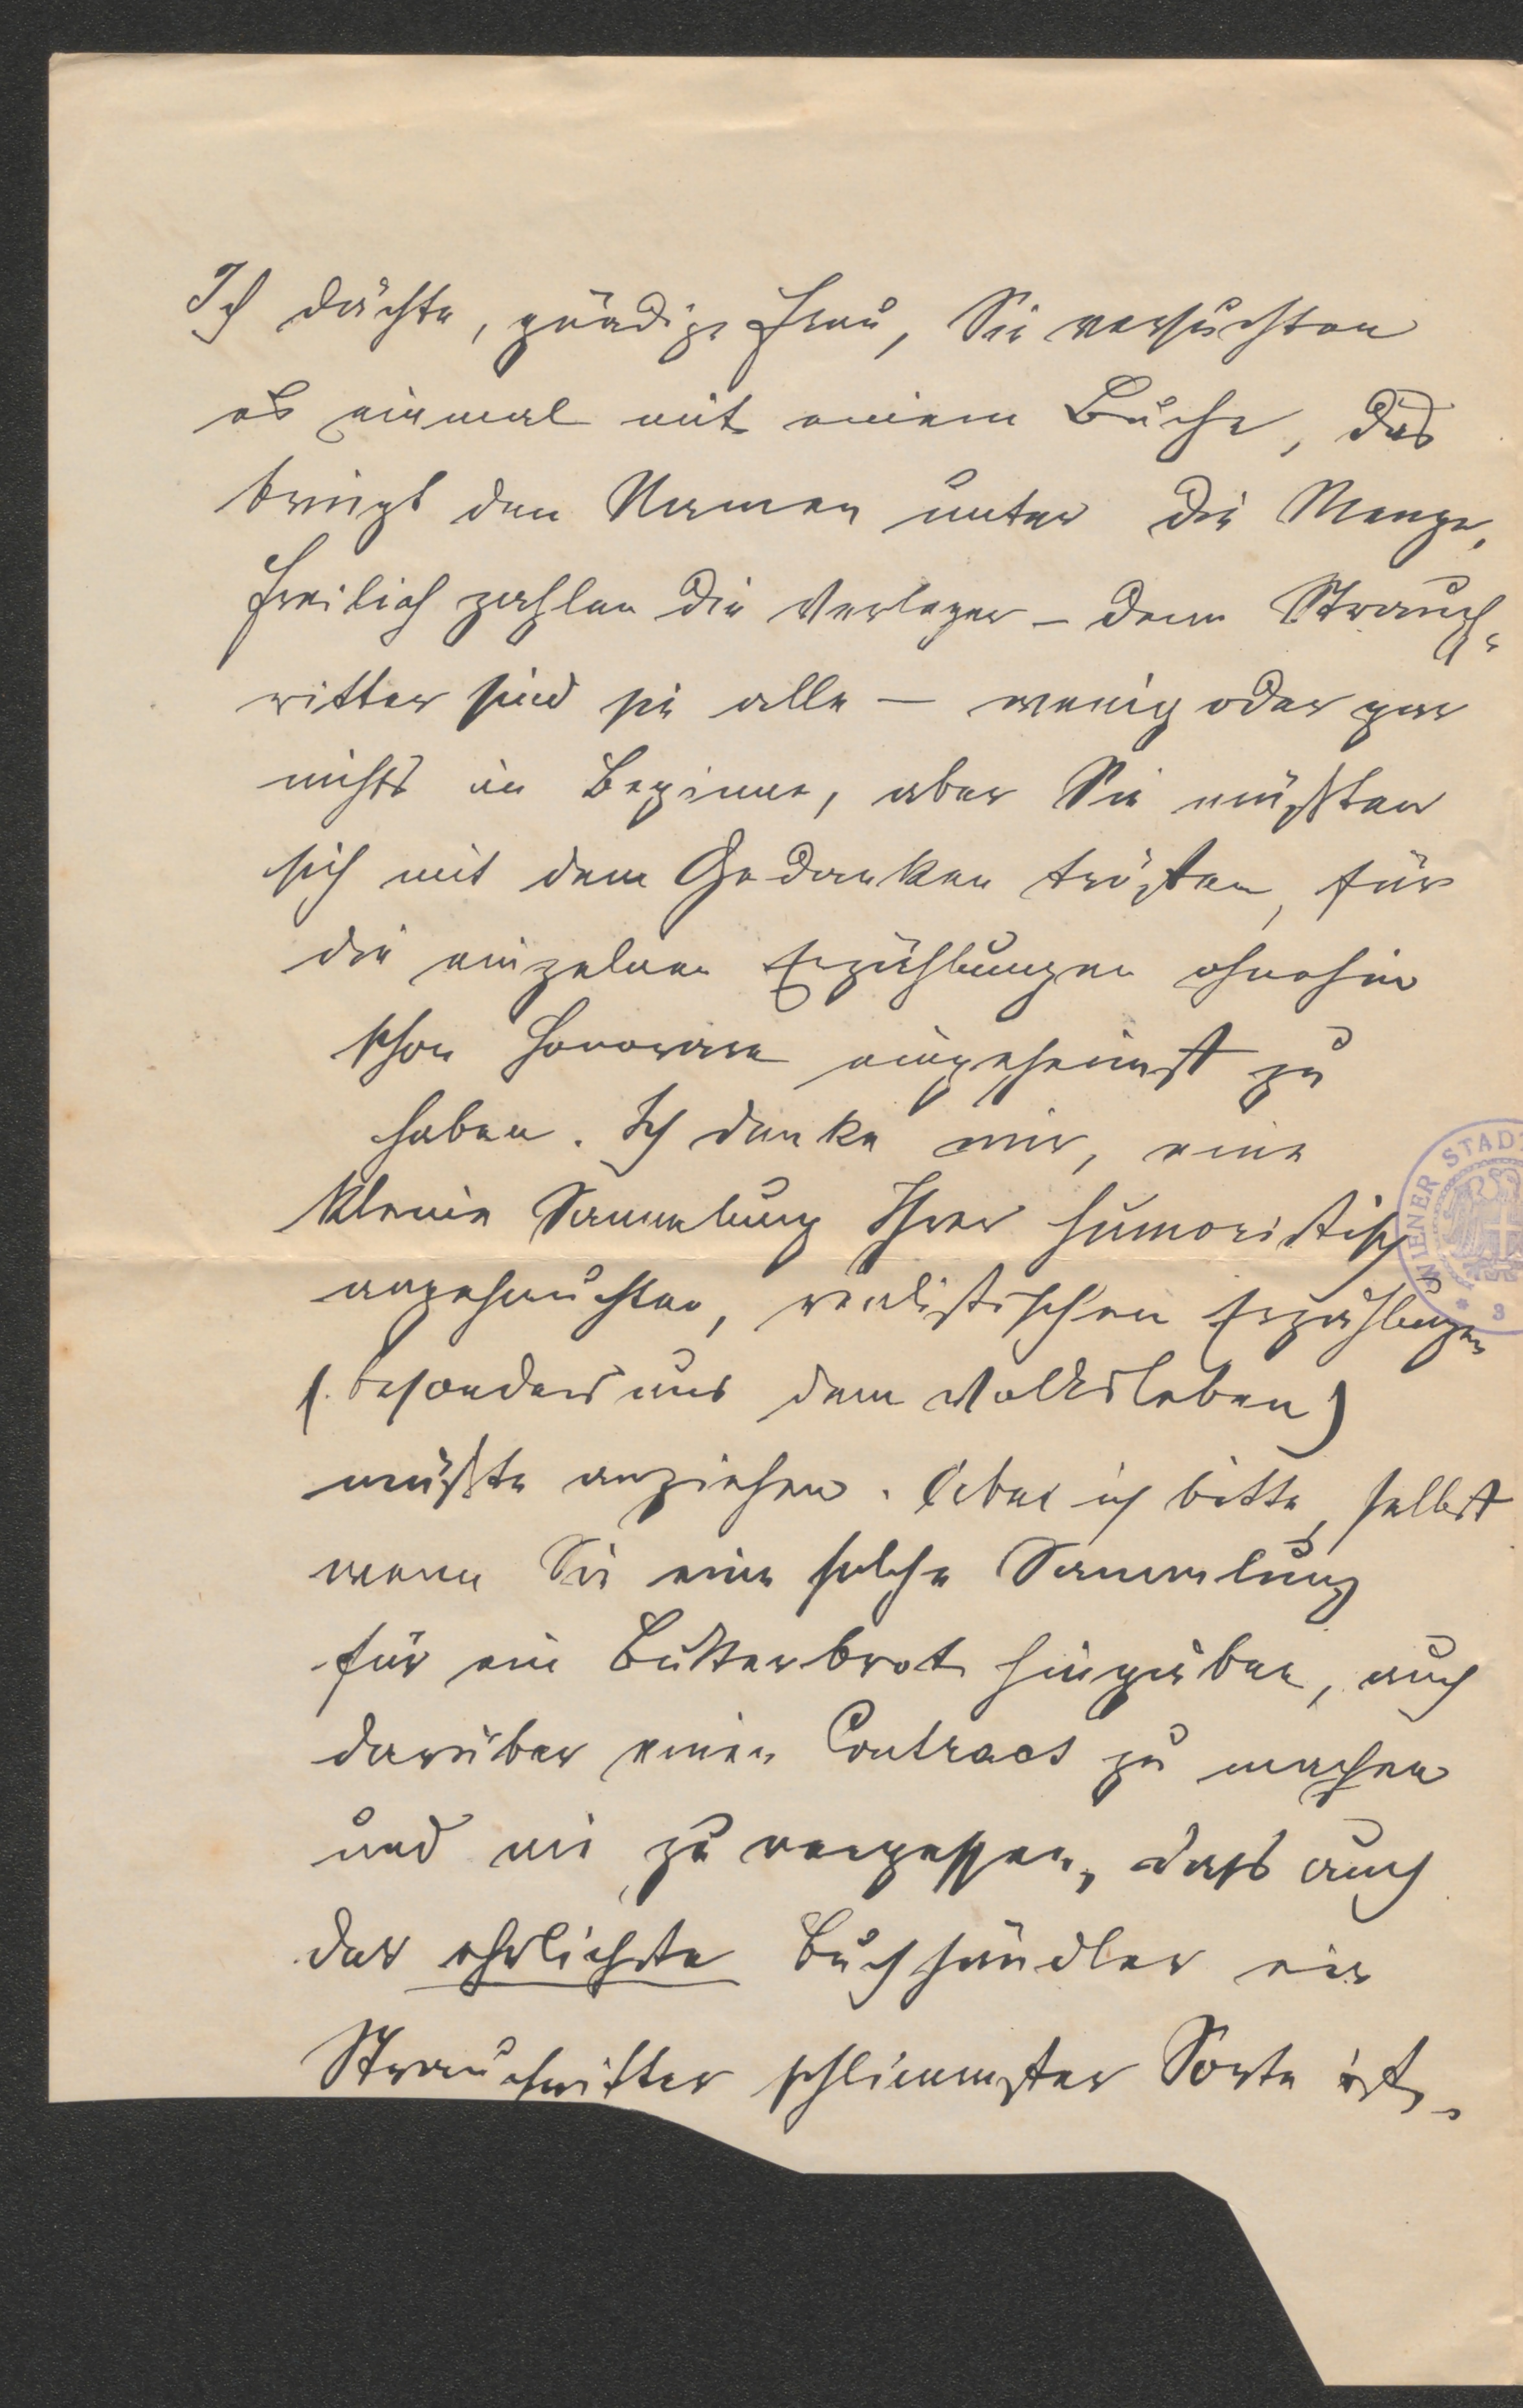 Ich dächte, gnädige Frau, Sie versuchten
es einmal mit einem Buche, das
bringt den Namen unter die Menge,
freilich zahlen die Verleger – denn Strauch-
ritter sind sie alle – wenig oder gar
nichts im Beginne, aber Sie müßten
sich mit dem Gedanken trösten, für
die einzelnen Erzählungen ohnehin
schon Honorare eingeheimst zu
haben. Ich denke mir, eine
kleine Sammlung Ihrer humoristisch
angehauchten, realistischen Erzählungen
(besonders aus dem Volksleben)
müßte anziehen. Aber ich bitte, selbst
wenn Sie eine solche Sammlung
für ein Butterbrot hingäben, auch
darüber einen Contract zu machen
und nie zu vergessen, daß auch
der ehrlichste Buchhändler ein
Strauchritter schlimmster Sorte ist.
WIENER STADT
* 3